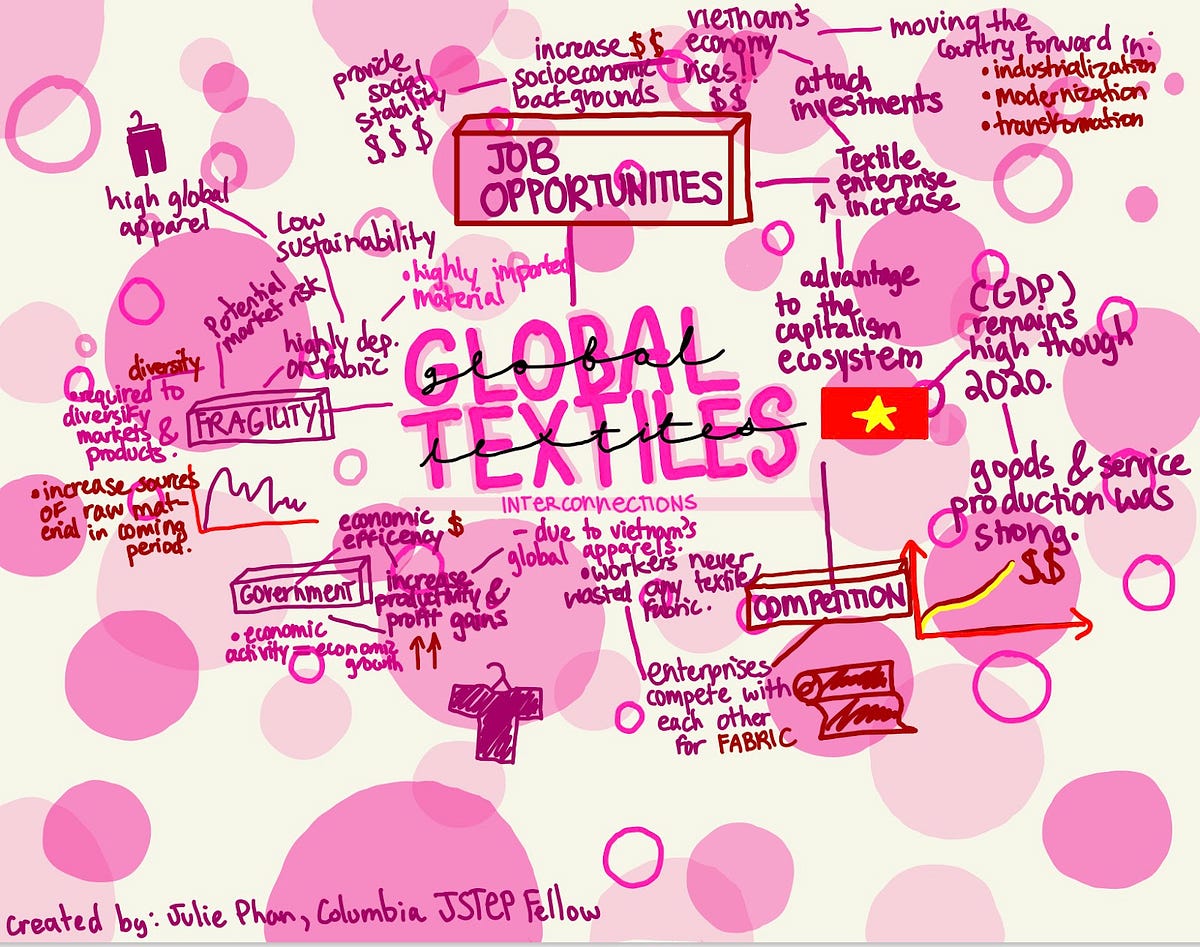 vietnam's
economy
rises!!
$$
moving the
country forward in:
• industrialization
• modernization
• transformation
attach
investments
increase $$
socioeconomic
backgrounds
provide
social
stability
$$$
JOB
OPPORTUNITIES
Textile
enterprise
↑ increase
advantage
to the
capitalism
ecosystem
(GDP)
remains
high though
2020.
goods & service
production was
strong.
$$
high global
apparel
Low
sustainability
• highly imported
material
Potential
market risk
highly dep.
on fabric
diversity
required to
diversify
markets &
products.
FRAGILITY
• increase sources
of raw mat-
erial in coming
period.
GLOBAL
global
TEXTILES
textites
INTERCONNECTIONS
economic
efficency $
GOVERNMENT
increase
productivity &
profit gains
• economic
activity = economic
growth ↑↑
- due to vietnam's
global apparels.
• workers never
wasted any textile/
fabric.
COMPETITION
enterprises
compete with
each other
for FABRIC
created by: Julie Phan, Columbia JSTEP Fellow